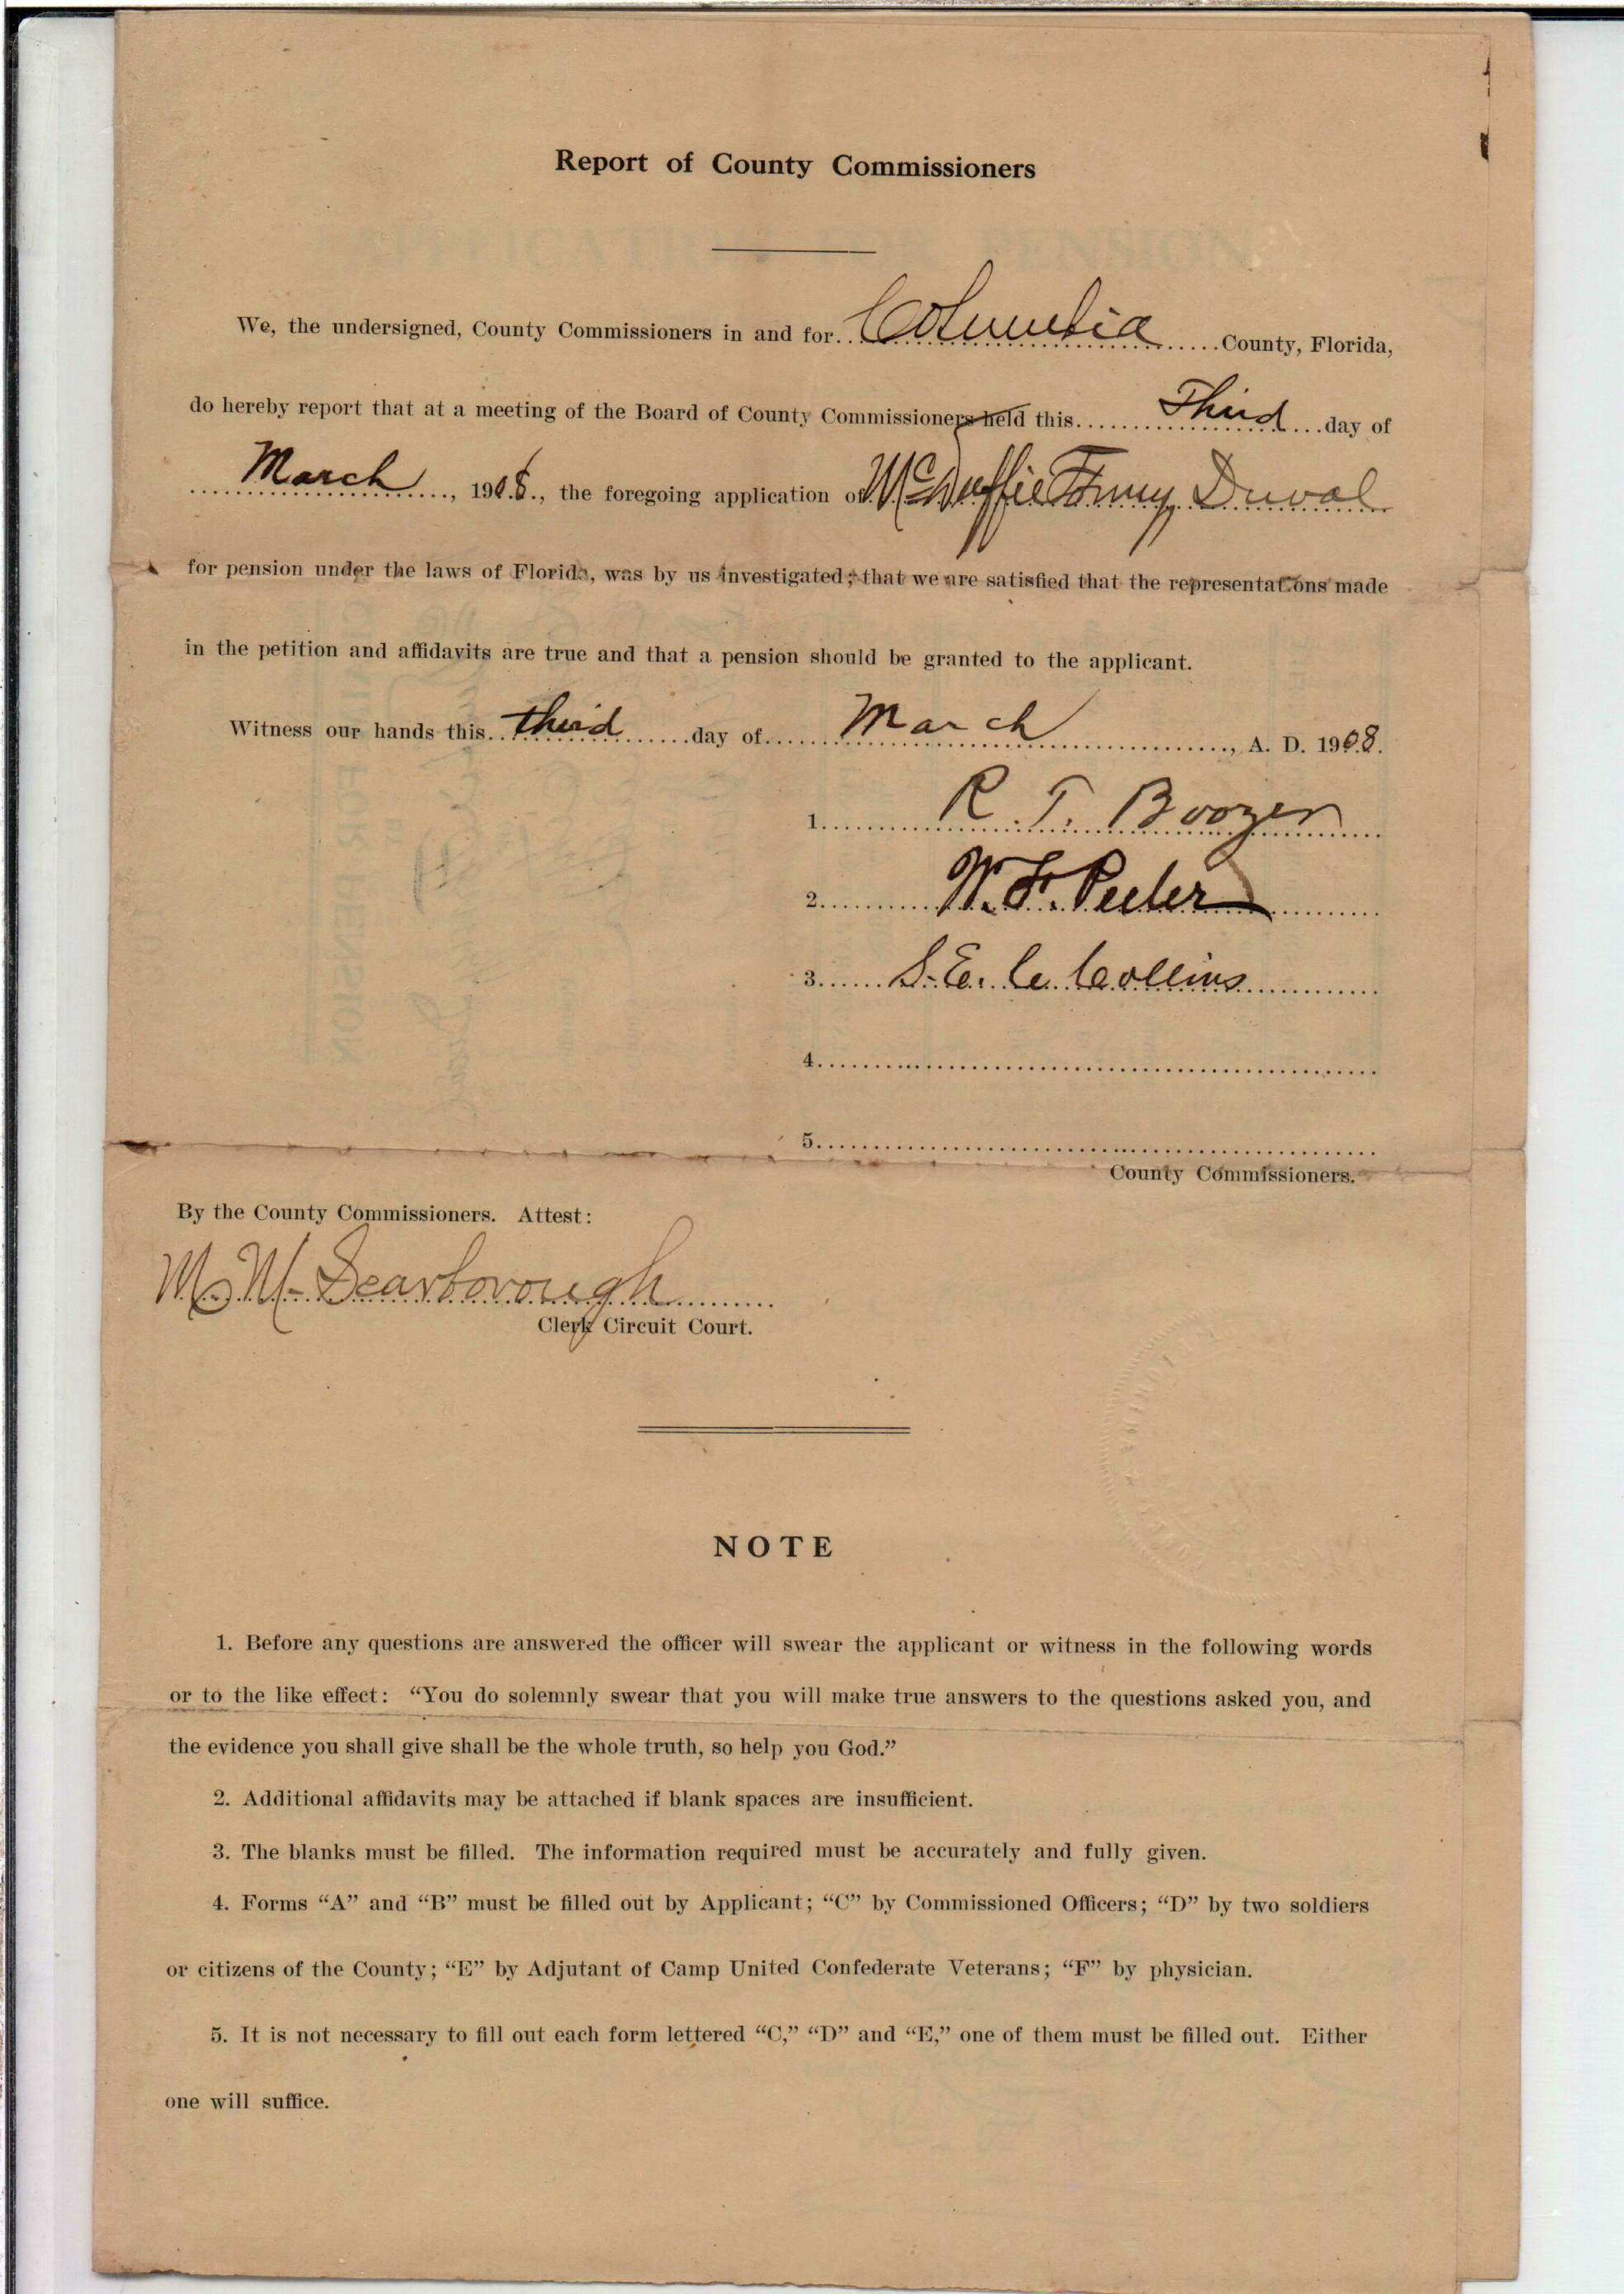 Report of County Commissioners
We, the undersigned, County Commissioners in and for Columbia County, Florida,
do hereby report that at a meeting of the Board of County Commissioners held this Third day of
March, 1908, the foregoing application of McDuffie Duval
for pension under the laws of Florida, was by us investigated; that we are satisfied that the representations made
in the petition and affidavits are true and that a pension should be granted to the applicant.
Witness our hands this third day of March, A. D. 1908.
1. R. T. Boozer
2. W. F. Peeler
3. S. E. C. Collins
4.
5.
County Commissioners.
By the County Commissioners. Attest:
M. M. Scarborough
Clerk Circuit Court.
NOTE
1. Before any questions are answered the officer will swear the applicant or witness in the following words
or to the like effect: “You do solemnly swear that you will make true answers to the questions asked you, and
the evidence you shall give shall be the whole truth, so help you God.”
2. Additional affidavits may be attached if blank spaces are insufficient.
3. The blanks must be filled. The information required must be accurately and fully given.
4. Forms “A” and “B” must be filled out by Applicant; “C” by Commissioned Officers; “D” by two soldiers
or citizens of the County; “E” by Adjutant of Camp United Confederate Veterans; “F” by physician.
5. It is not necessary to fill out each form lettered “C,” “D” and “E,” one of them must be filled out. Either
one will suffice.